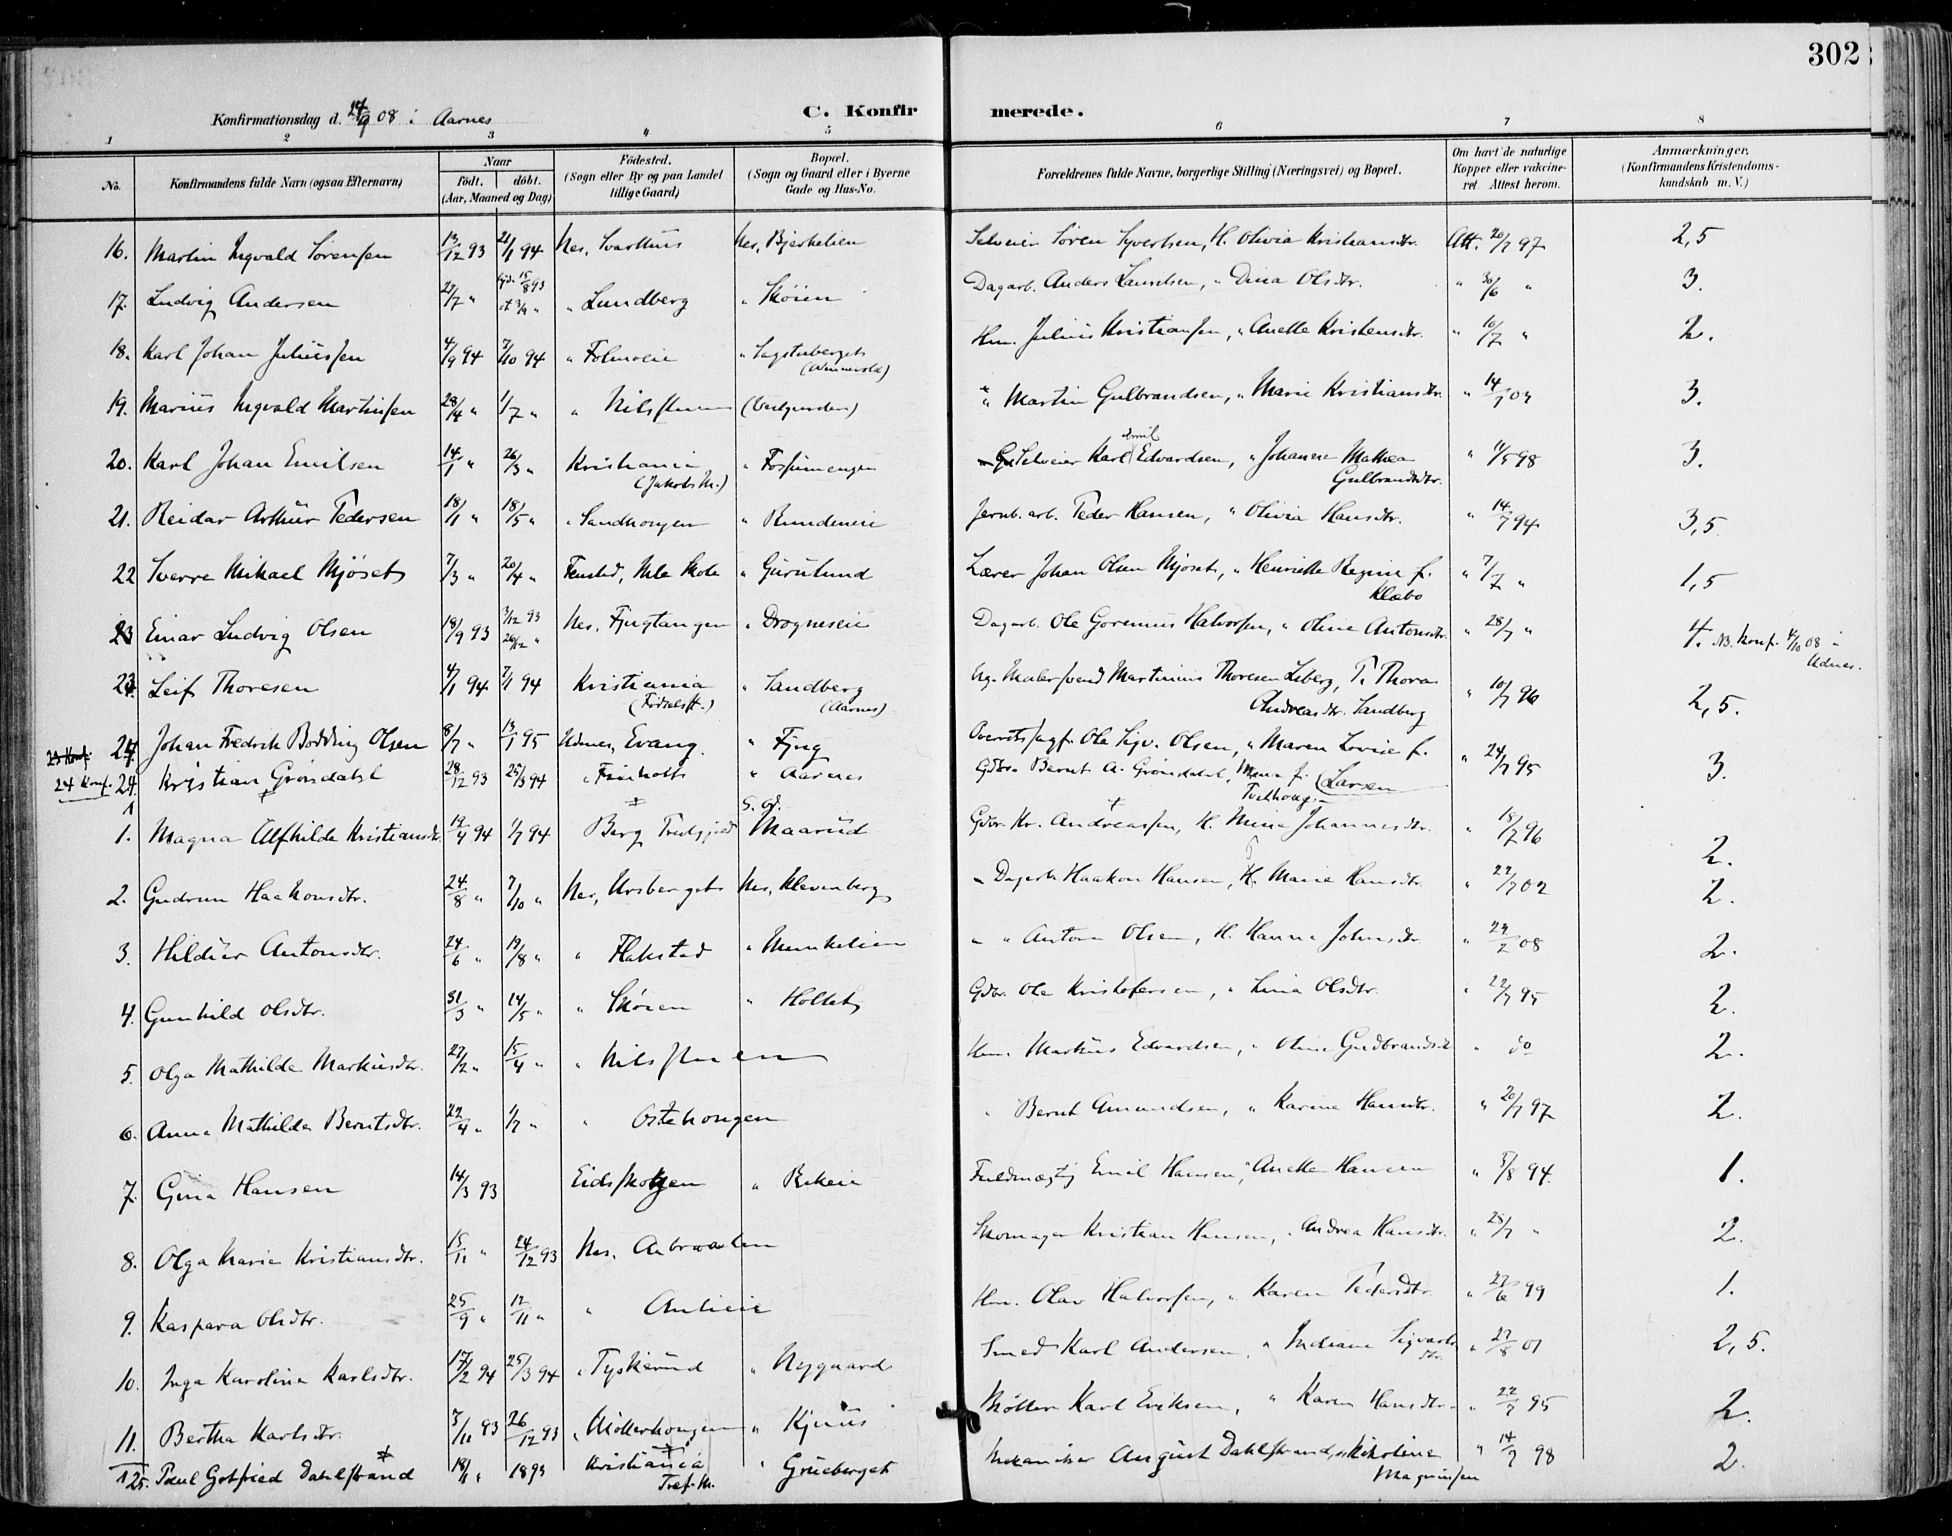 302
Konfirmationsdag d. 14/9 08 i Aarnes
C. Konfirmerede.
1 2 3 4 5 6 7 8
No. Konfirmandens fulde Navn (ogsaa Efternavn) Naar födt. döbt. (Aar, Maaned og Dag) Födested. (Sogn eller By og paa Landet tillige Gaard) Bopæl. (Sogn og Gaard eller i Byerne Gade og Hus-No. Forældrenes fulde Navne, borgerlige Stilling (Næringsvei) og Bopæl. Om havt de naturlige Kopper eller vakcineret. Attest herom. Anmærkninger. (Konfirmandens Kristendomskundskab m. V.)
16. Martin Ingvald Sørensen 13/12 93 21/1 94 Nes, Svarthus Nes, Bjerkelien Selveier Søren Syvertsen, H. Olivia Kristiansdtr. Att. 20/7 97 2,5
17. Ludvig Andersen 27/7 " 15/8 93 " Lundberg " Sköien Dagarb. Anders Lauritsen, " Dina Olsdtr. " 30/6 " 3.
18. Karl Johan Juliussen 4/9 94 7/10 94 " Folmoeie " Sagstuberget Hm. Julius Kristiansen, " Anette Kristensdtr. " 10/7 " 2.
19. Marius Ingvald Martinsen 28/4 " 1/7 " " Nilsstuen " Martin Gulbrandsen, " Marie Kristiansdtr. " 14/1 07 3.
20. Karl Johan Emilsen 14/1 " 26/3 " Kristiania (Jakobs M.) " Fossumengen Selveier Karl Emil Edvardsen, " Johanne Mathea Gulbrandsdtr. " 11/5 98 3.
21. Reidar Arthur Pedersen 18/1 " 18/5 " " Sandhougen " Rundeneie Jernb.arb. Peder Hansen, " Olivia Hansdtr. " 14/7 94 3,5
22 Sverre Mikael Mjöset 7/3 " 20/4 " Fenstad, Mle Skole " Gurulund Lærer Johan Olsen Mjöset, " Henriette Regine f. Klæbo " 7/7 " 1,5
23 Einar Ludvig Olsen 18/9 93 3/12 93 26/12 " Nes, Fjugtangen " Drogneseie Dagarb. Ole Gorenius Halvorsen, " Oline Antonsdtr. " 28/7 " 4. NB. Konf. 4/10 08 i Udnes.
23. Leif Thoresen 4/1 94 7/1 94 Kristiania (Födselsst.) " Sandberg (Aarnes) Ug. Malersvend Martinius Thoresen Leberg, P. Thora Andreasdtr. Sandberg " 10/7 96 2,5.
24. Johan Fredrik Bodding Olsen 8/7 " 13/1 95 Udnes, Evang. " Fjug Ole Sigv. Olsen, " Maren Lovise f. Larsen " 24/7 95 3.
24 Konf. 24. Kristian Grönsdahl 28/12 93 25/3 94 " Finholt " Aarnes Gdbr. Bernt A. Grönsdahl, Mina f. Tvethoug
1. Magna Alfhilde Kristiansdtr. 19/4 94 1/7 94 Berg Maarud Gdbr. Kr. Andreassen, H. Mina Johannesdtr. " 18/7 96 2.
2. Gudrun Haakonsdtr. 24/8 " 7/10 " Nes, Ursberget Nes, Klevenberg Dagarb. Haakon Hansen, H. Marie Hansdtr. " 22/7 02 2.
3. Hildur Antonsdtr. 24/6 " 19/8 " " Flakstad " Munkelien " " Anton Olsen, H. Hanna Johnsdtr. " 29/2 08 2.
4. Gunhild Olsdtr. 31/3 " 14/5 " " Skøien " Hollet Gdbr. Ole Kristofersen, " Lina Olsdtr. " 22/7 95 2.
5. Olga Mathilde Markusdtr. 27/2 " 15/4 " " Nilsstuen Hm. Markus Edvardsen, " Oline Gudbrandsdtr. " do 2.
6. Anna Mathilde Berntsdtr. 22/4 " 1/7 " " Ostehougen " Bernt Amundsen, " Karine Hansdtr. " 20/7 97 2.
7. Gina Hansen 14/3 93 Eidskogen " Rekeie Fuldmægtig Emil Hansen, " Anette Hansen " 8/8 94. 1.
8. Olga Marie Kristiansdtr. 15/11 " 24/12 93 Nes, Aabraaten Skomager Kristian Hansen, " Andrea Hansdtr. " 28/7 " 2.
9. Kaspara Olsdtr. 25/9 " 12/11 " " Aulieie Hm. Olav Halvorsen, " Karen Pedersdtr. " 27/6 99 1.
10. Inga Karoline Karlsdtr. 17/2 94 25/3 94 " Tyskerud " Nygaard Smed Karl Andersen, " Indiane Sigvartsdtr. " 27/8 01 2,5.
11. Bertha Karlsdtr. 7/11 93 26/12 93 " Möllerhougen " Kjuus Möller Karl Eriksen, " Karen Hansdtr. " 22/7 95 2.
25. Paul Gotfried Dahlstrand 18/1 " 1893 Kristiania Tref. M. " Grueberget Mekaniker August Dahlstrand, Nikoline Magnussen " 14/7 98 2.